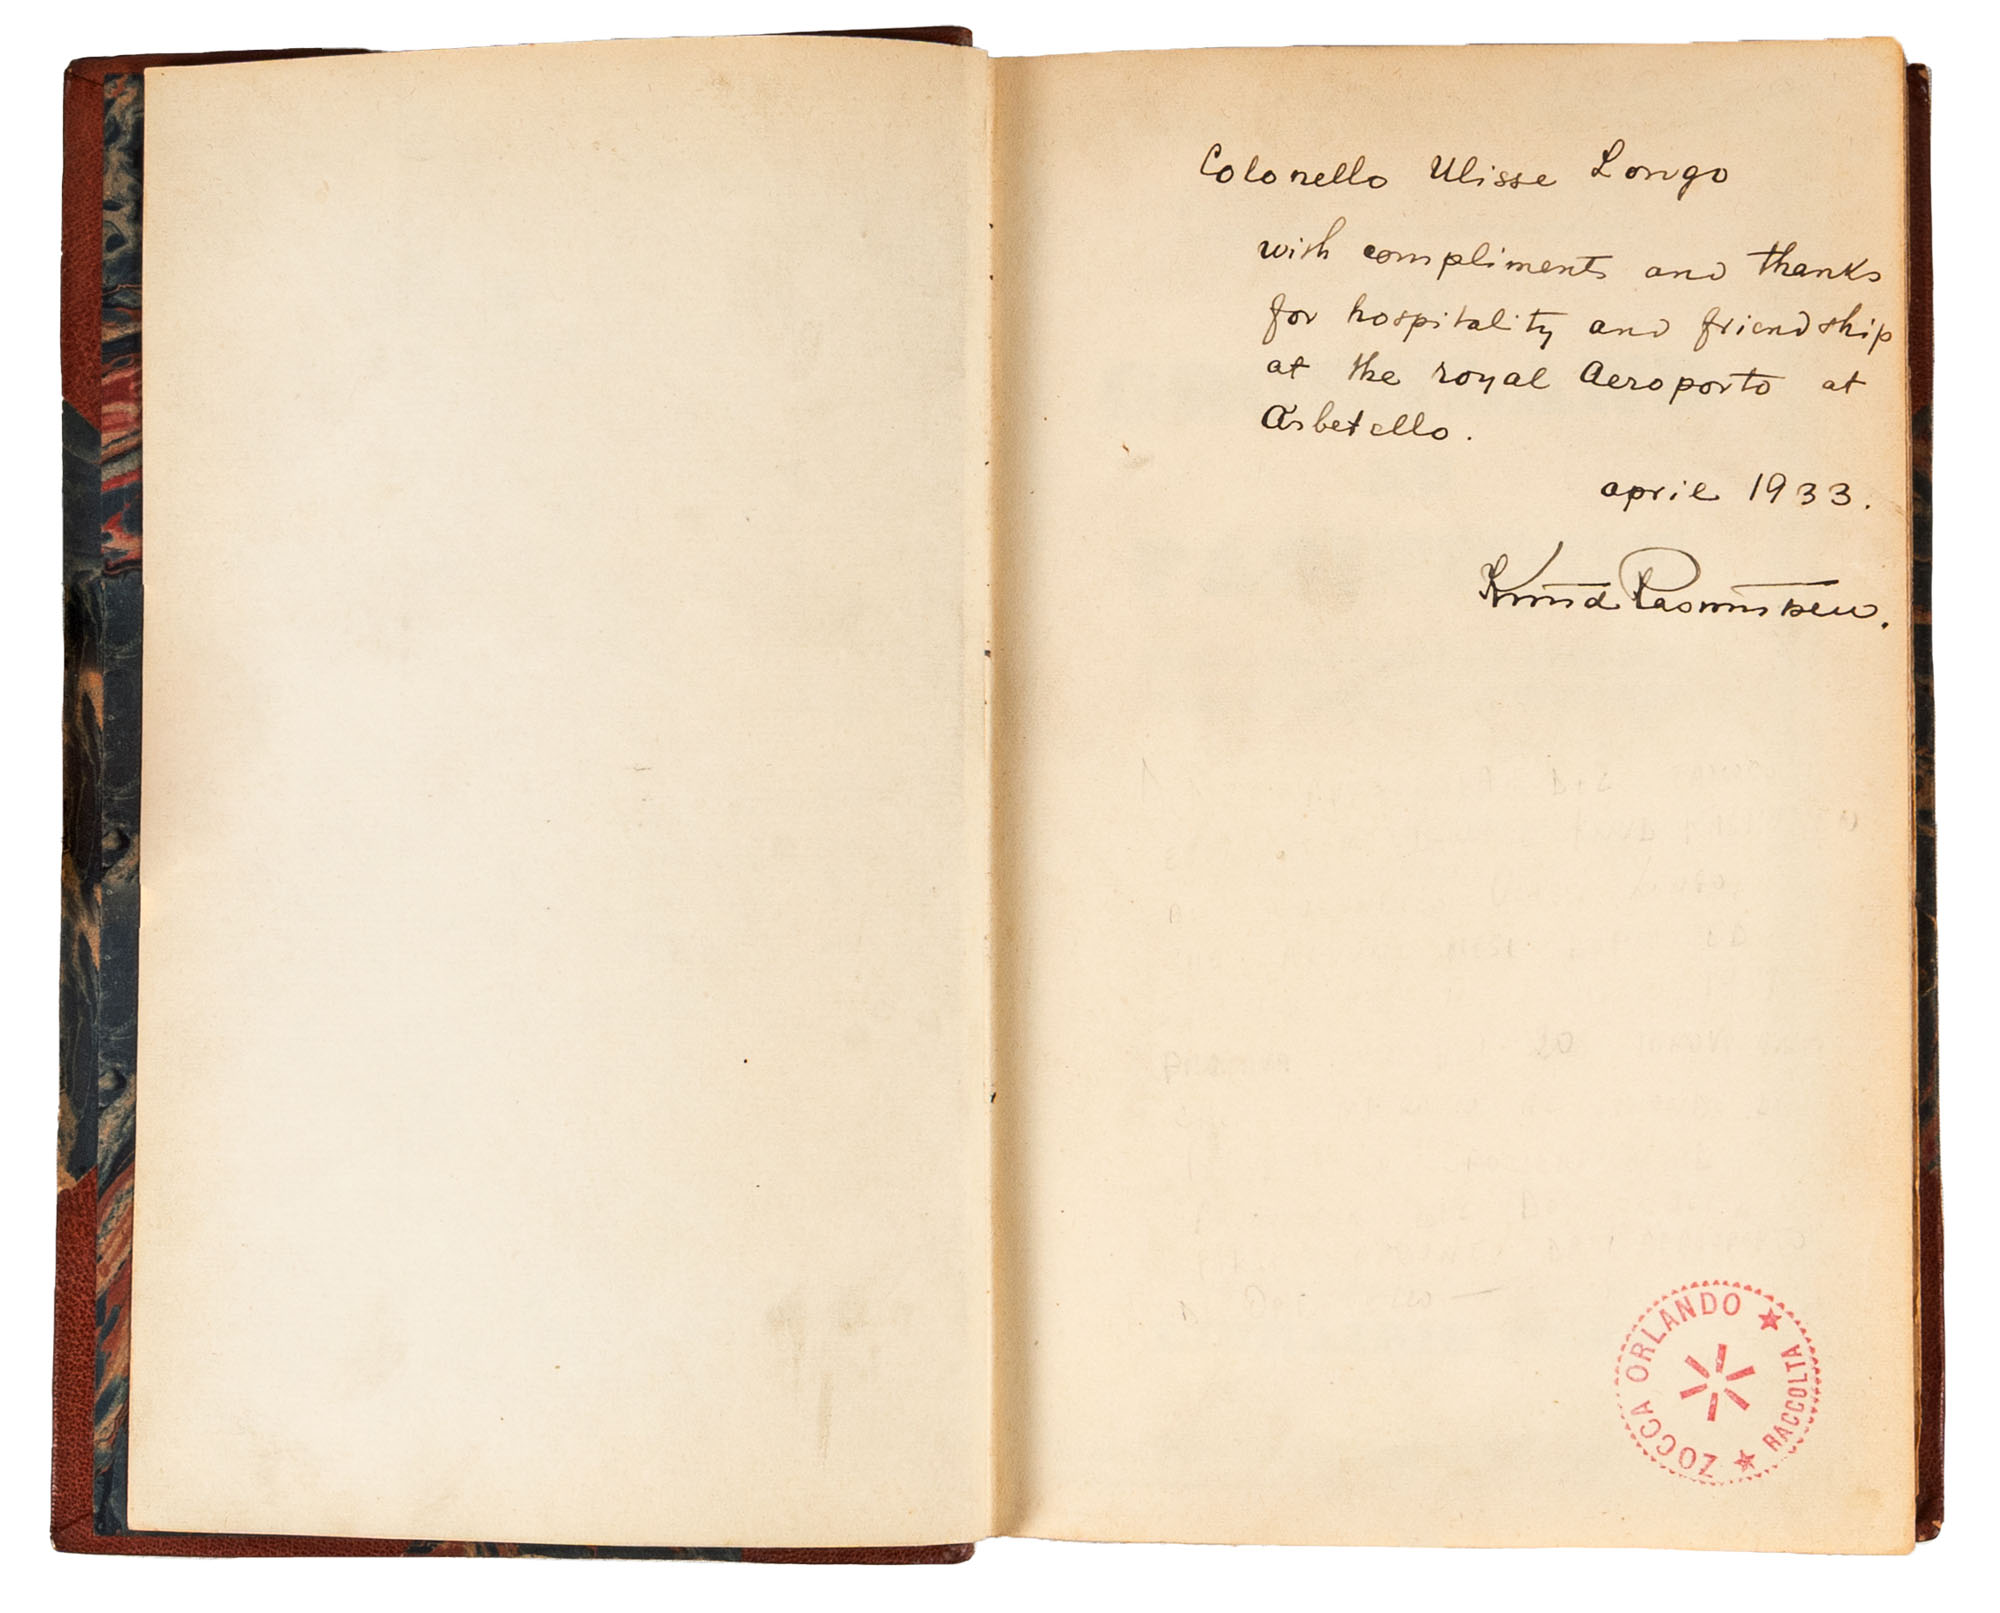 Colonello Ulisse Longo
with compliments and thanks
for hospitality and friendship
at the royal Aeroporto at
Orbetello.
april 1933.
Knud Rasmussen.
ZOCCA ORLANDO ★ RACCOLTA ★